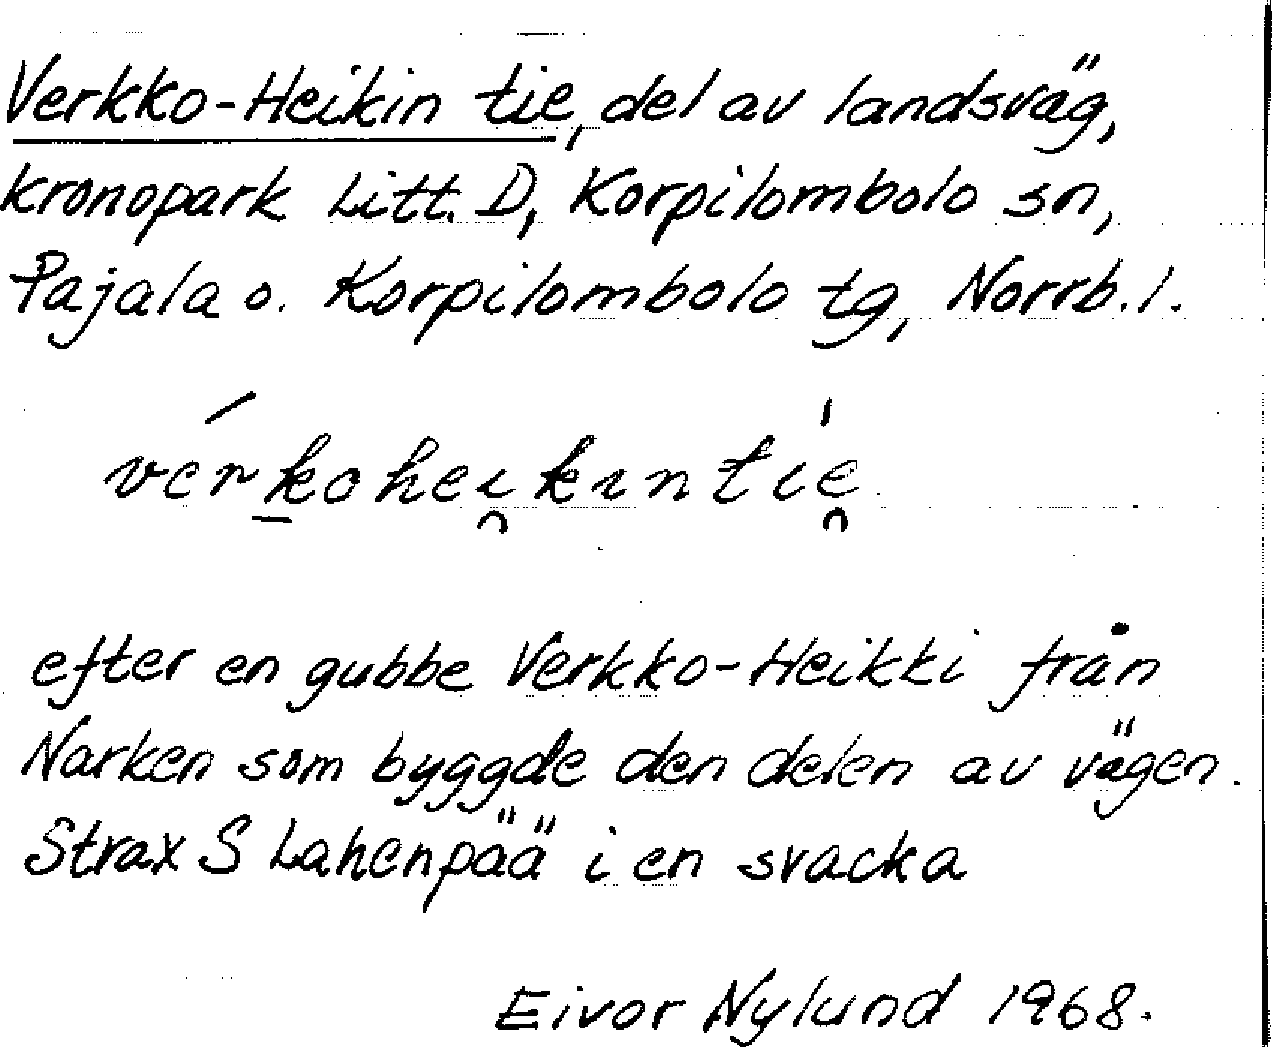 Verkko-Heikin tie, del av landsväg,
kronopark Litt. D, Korpilombolo sn,
Pajala o. Korpilombolo tg, Norrb. l.
vérk̠ohei̯kıntí̍e̯
efter en gubbe Verkko-Heikki från
Narken som byggde den delen av vägen.
Strax S Lahenpää i en svacka
Eivor Nylund 1968.